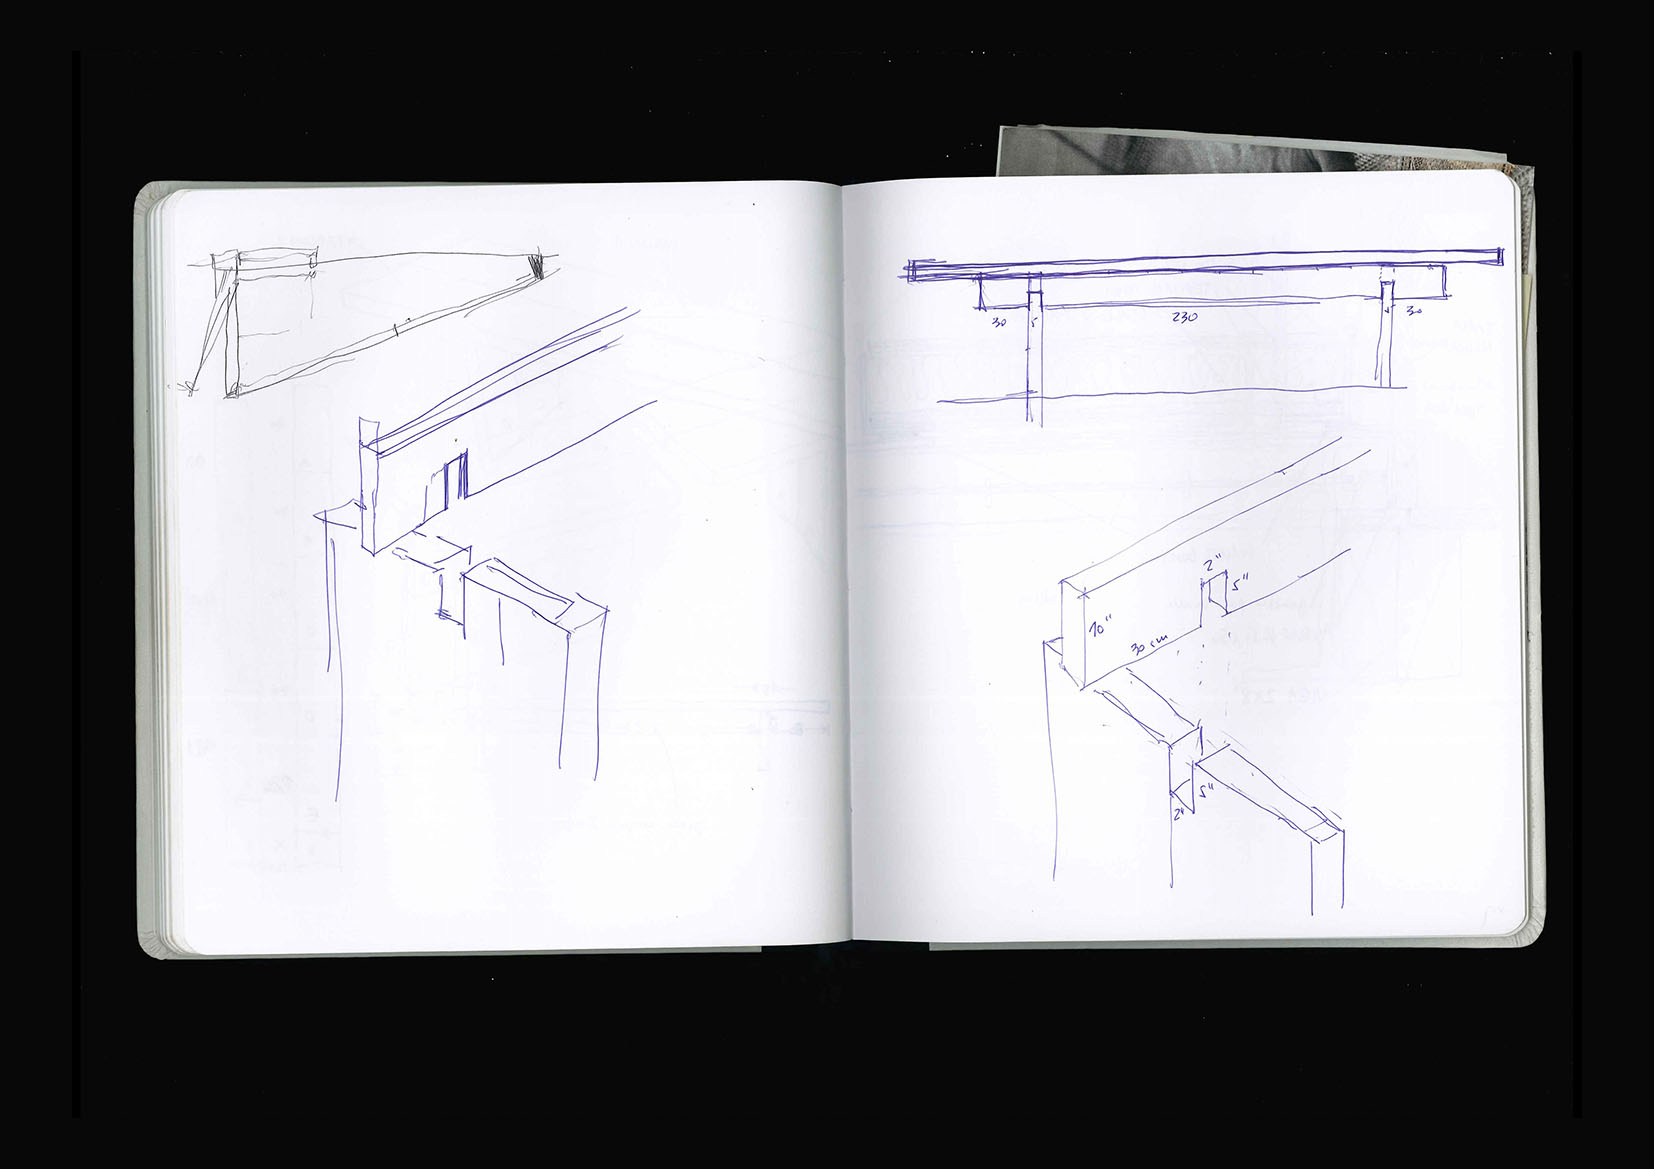 30 5 230 5 30
2"
5"
10"
30 cm
5"
2"